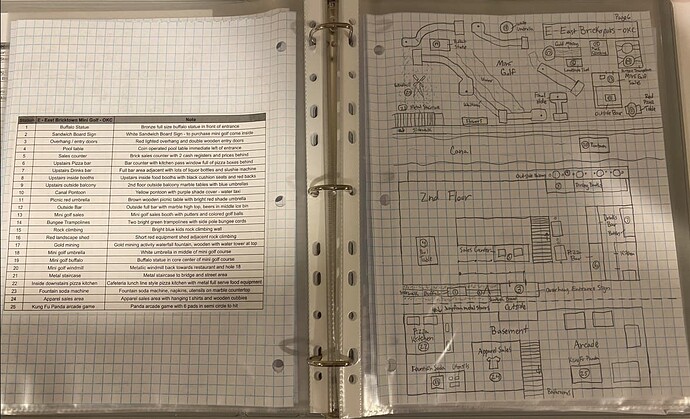 Station E - East Bricktown Mini Golf - OKC Note
1 Buffalo Statue Bronze full size buffalo statue in front of entrance
2 Sandwich Board Sign White Sandwich Board Sign - to purchase mini golf come inside
3 Overhang / entry doors Red lighted overhang and double wooden entry doors
4 Pool table Coin operated pool table immediate left of entrance
5 Sales counter Brick sales counter with 2 cash registers and prices behind
6 Upstairs Pizza bar Bar counter with kitchen pass window full of pizza boxes behind
7 Upstairs Drinks bar Full bar area adjacent with lots of liquor bottles and slushie machine
8 Upstairs inside booths Upstairs inside food booths with black cushion seats and red backs
9 Upstairs outside balcony 2nd floor outside balcony marble tables with blue umbrellas
10 Canal Pontoon Yellow pontoon with purple shade cover - water taxi
11 Picnic red umbrella Brown wooden picnic table with bright red shade umbrella
12 Outside Bar Outside full bar with marble high top, beers in middle ice bin
13 Mini golf sales Mini golf sales booth with putters and colored golf balls
14 Bungee Trampolines Two bright green trampolines with side pole bungee cords
15 Rock climbing Bright blue kids rock climbing wall
16 Red landscape shed Short red equipment shed adjacent rock climbing
17 Gold mining Gold mining activity waterfall fountain, wooden with water tower at top
18 Mini golf umbrella White umbrella in middle of mini golf course
19 Mini golf buffalo Buffalo statue in core center of mini golf course
20 Mini golf windmill Metallic windmill back towards restaurant and hole 18
21 Metal staircase Metal staircase to bridge and street area
22 Inside downstairs pizza kitchen Cafeteria lunch line style pizza kitchen with metal full serve food equipment
23 Fountain soda machine Fountain soda machine, napkins, utensils on marble countertop
24 Apparel sales area Apparel sales area with hanging t shirts and wooden cubbies
25 Kung Fu Panda arcade game Panda arcade game with 6 pads in semi circle to hit
Page 6
E - East Bricktown - OKC
Mini
Golf
Gold Mining
Mini Golf
Sale
Outside Bar
Red
Picnic
Table
Canal
Pontoon
2nd Floor
Pool
Table
Sales Counter
Drinks
Bar
Overhang Entrance Sign
Outside
Basement
Pizza
Kitchen
22
Apparel Sales
24
Arcade
Kung Fu Panda
25
Fountain Soda
Utensils
23
Bathrooms